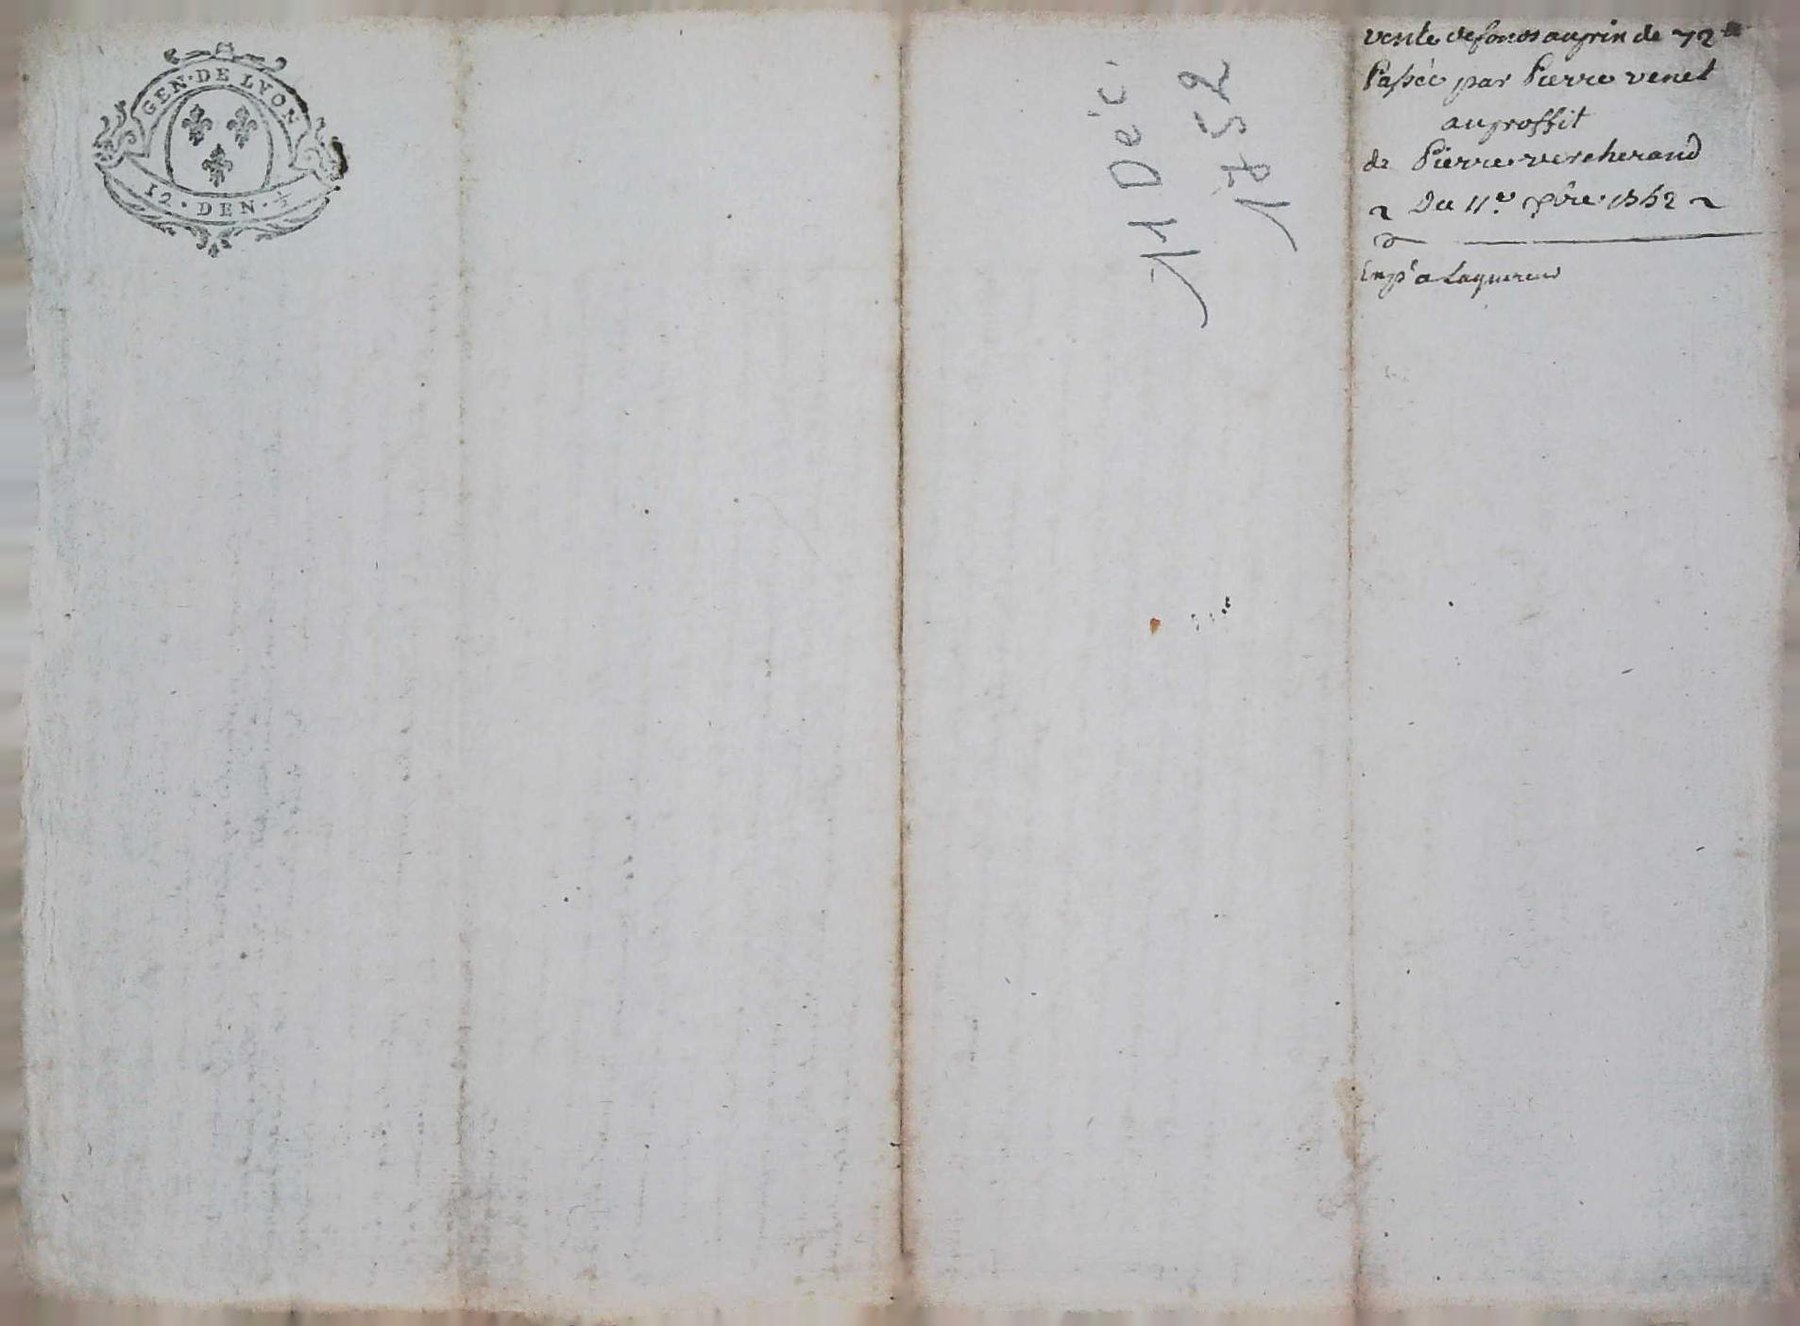 GEN·DE LYON
12·DEN·½
11 Déc.
1752
vente de fonds au prix de 72 ₶
Passée par Pierre venet
au proffit
de Pierre vercherand
Du 11.e xbre 1752